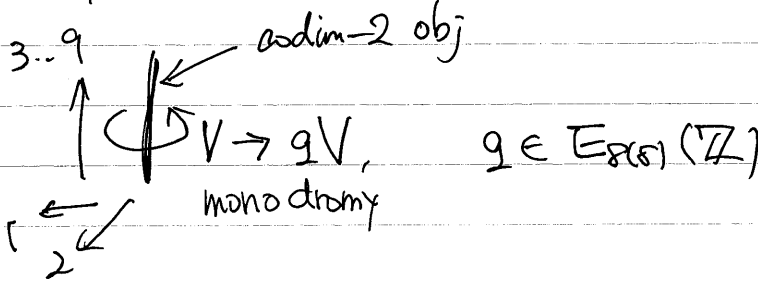 codim-2 obj
3..9
V → gV, g ∈ E8(8) (ℤ)
monodromy
1
2